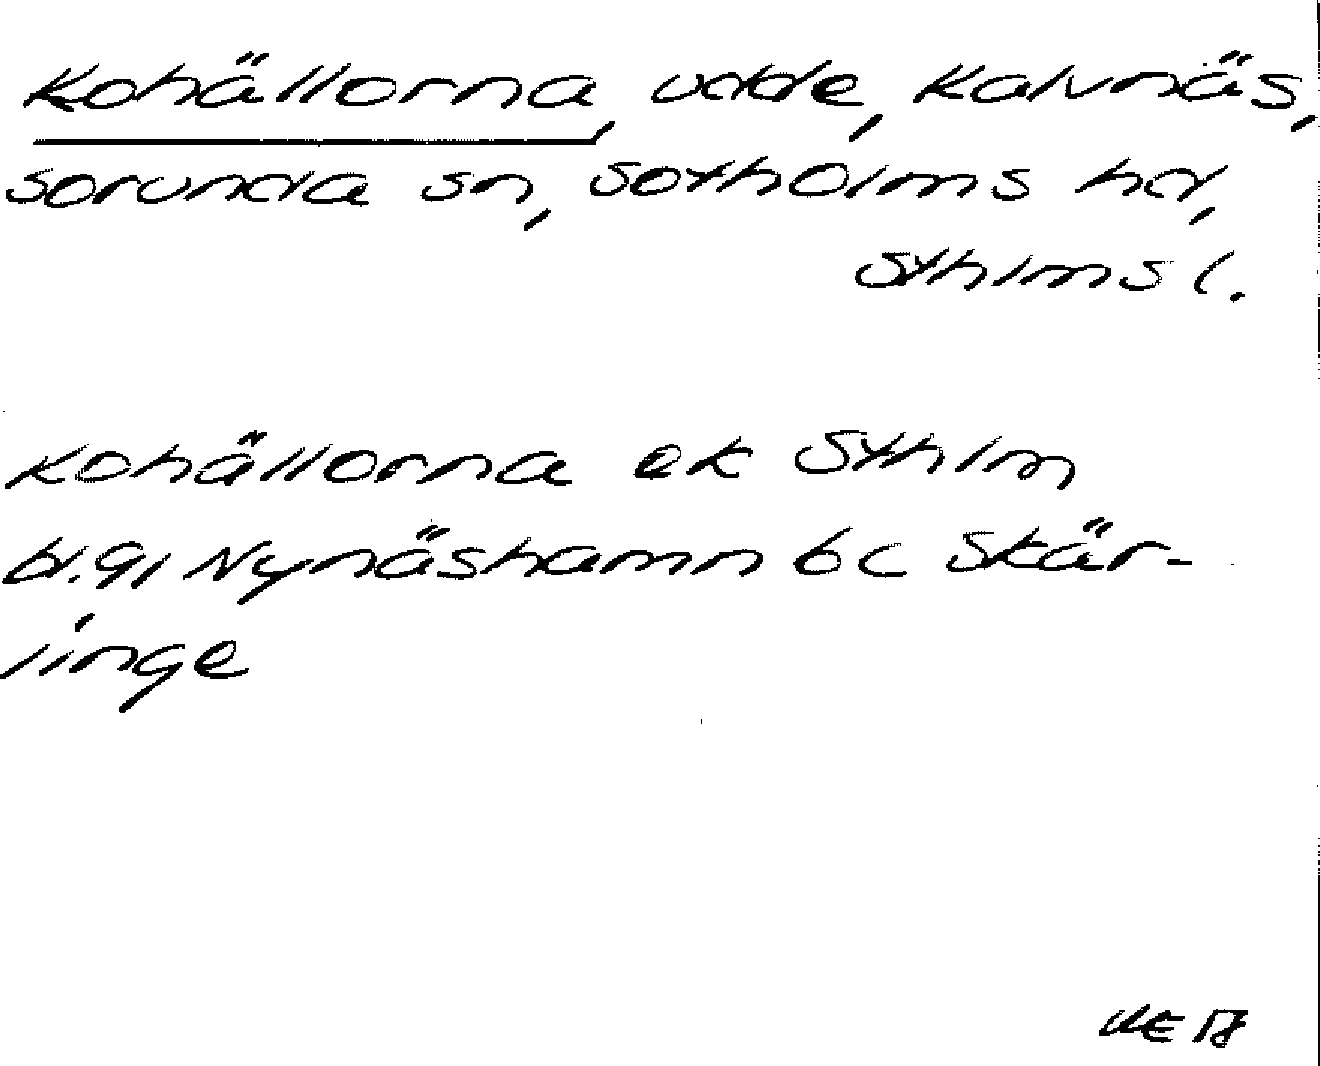 Kohällorna, udde, Kalvnäs,
Sorunda sn, Sotholms hd,
Sthlms l.
Kohällorna ek Sthlm
bl. 91 Nynäshamn 6c Skär-
linge